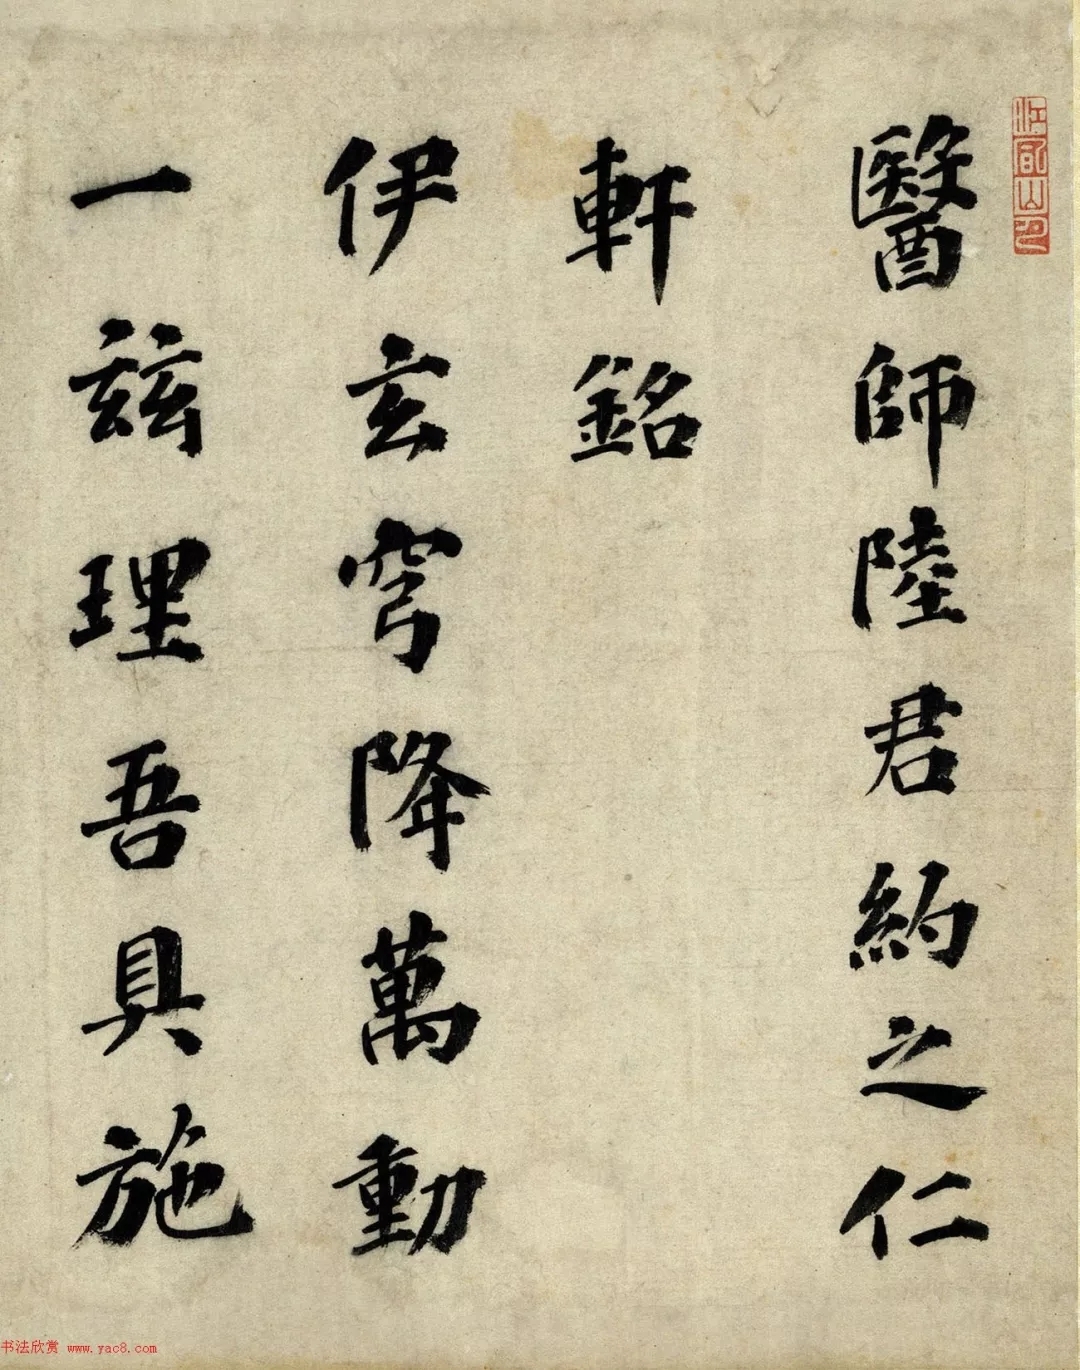 醫師陸君約之仁
軒銘
伊玄穹降萬動
一兹理吾具施
书法欣赏 www.yac8.com